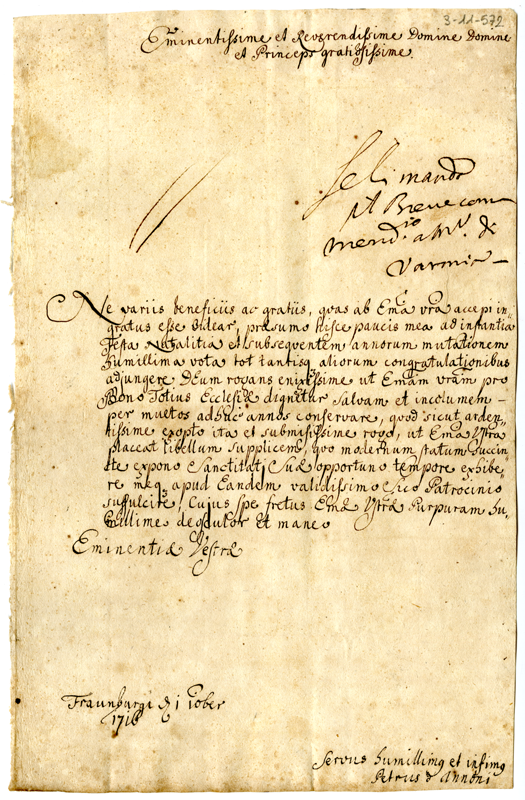 3-11-572
Eminentissime et Reverendissime Domine Domine
et Princeps gratiosissime.
Se li mandò
Breve com
mend.rio a M.r di
Varmia
Ne variis beneficiis ac gratiis, quas ab Emâ vrâ accepi in=
gratus esse videar, præsumo hisce paucis mea ad instantia
Festa Natalitia et subsequentem annorum mutationem
humillima vota tot tantisq aliorum congratulationibus
adjungere DEum rogans enixissime ut Emam vram pro
Bono Totius Ecclesiæ dignetur salvam et incolumem
per multos adhuc annos conservare, quod sicut arden=
tissime exopto ita et submississime rogo, ut Emæ Vstræ
placeat libellum supplicem, quo modernum statum succin=
cte expono Sanctitati Suæ opportuno tempore exhibe=
re meq apud Eandem validissimo suo Patrocinio
suffulcire, Cujus spe fretus Emæ Vstræ Purpuram hu=
millime deosculor et maneo
Eminentiæ Vestræ
Fraunburgi d 1 Xober
1716
Servus humillimq et infimq
Petrus d Annoni